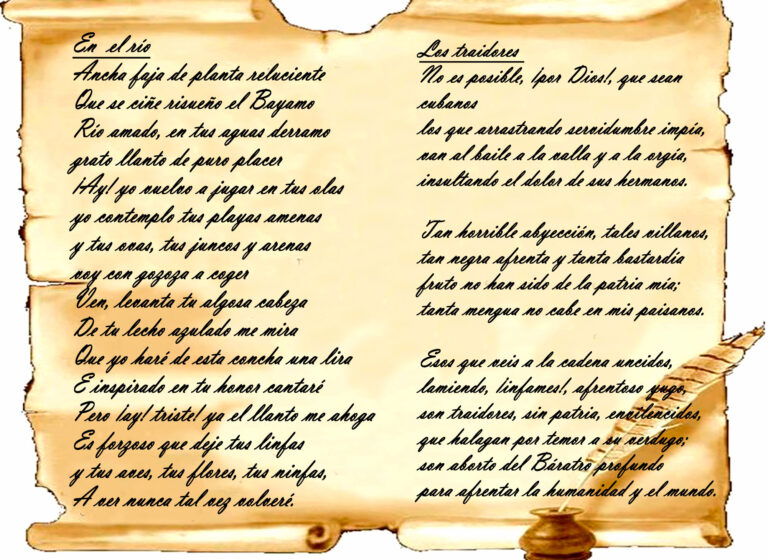 En el río
Ancha faja de planta reluciente
Que se ciñe risueño el Bayamo
Río amado, en tus aguas derramo
grato llanto de puro placer
¡Ay! yo vuelvo a jugar en tus olas
yo contemplo tus playas amenas
y tus ovas, tus juncos y arenas
voy con gozoza a coger
Ven, levanta tu algosa cabeza
De tu lecho azulado me mira
Que yo haré de esta concha una lira
E inspirado en tu honor cantaré
Pero ¡ay! triste! ya el llanto me ahoga
Es forzoso que deje tus linfas
y tus aves, tus flores, tus ninfas,
A ver nunca tal vez volveré.
Los traidores
No es posible, ¡por Dios!, que sean
cubanos
los que arrastrando servidumbre impía,
van al baile a la valla y a la orgía,
insultando el dolor de sus hermanos.
Tan horrible abyección, tales villanos,
tan negra afrenta y tanta bastardía
fruto no han sido de la patria mía;
tanta mengua no cabe en mis paisanos.
Esos que veis a la cadena uncidos,
lamiendo, ¡infames!, afrentoso yugo,
son traidores, sin patria, envilencidos,
que halagan por temor a su verdugo;
son aborto del Báratro profundo
para afrentar la humanidad y el mundo.